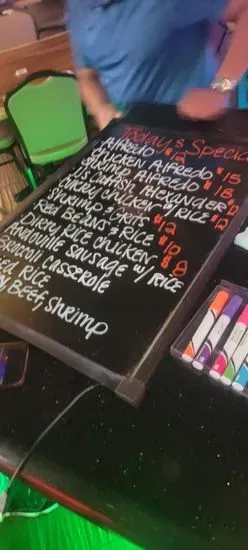 Today's Special
Alfredo $12
Chicken Alfredo $15
Shrimp Alfredo $18
Catfish
Curry Chicken w/ Rice $12
Shrimp & Grits $12
Red Beans & Rice $10
Dirty Rice Chicken $8
Andouille Sausage w/ Rice
Broccoli Casserole
Rice
Beef, Shrimp